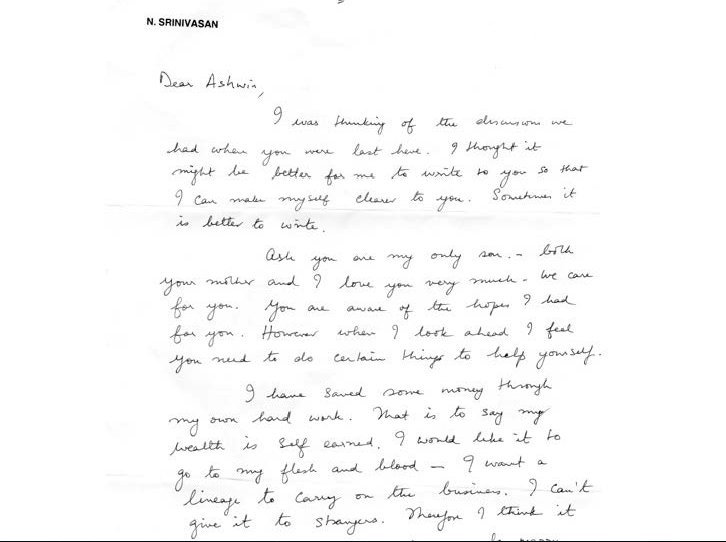 N. SRINIVASAN
Dear Ashwin,
I was thinking of the discussion we
had when you were last here. I thought it
might be better for me to write to you so that
I can make myself clearer to you. Sometimes it
is better to write.
Ash you are my only son. - both
your mother and I love you very much - We care
for you. You are aware of the hopes I had
for you. However when I look ahead I feel
you need to do certain things to help yourself.
I have saved some money through
my own hard work. That is to say my
wealth is self earned. I would like it to
go to my flesh and blood — I want a
lineage to carry on the business. I can't
give it to strangers. Therefore I think it